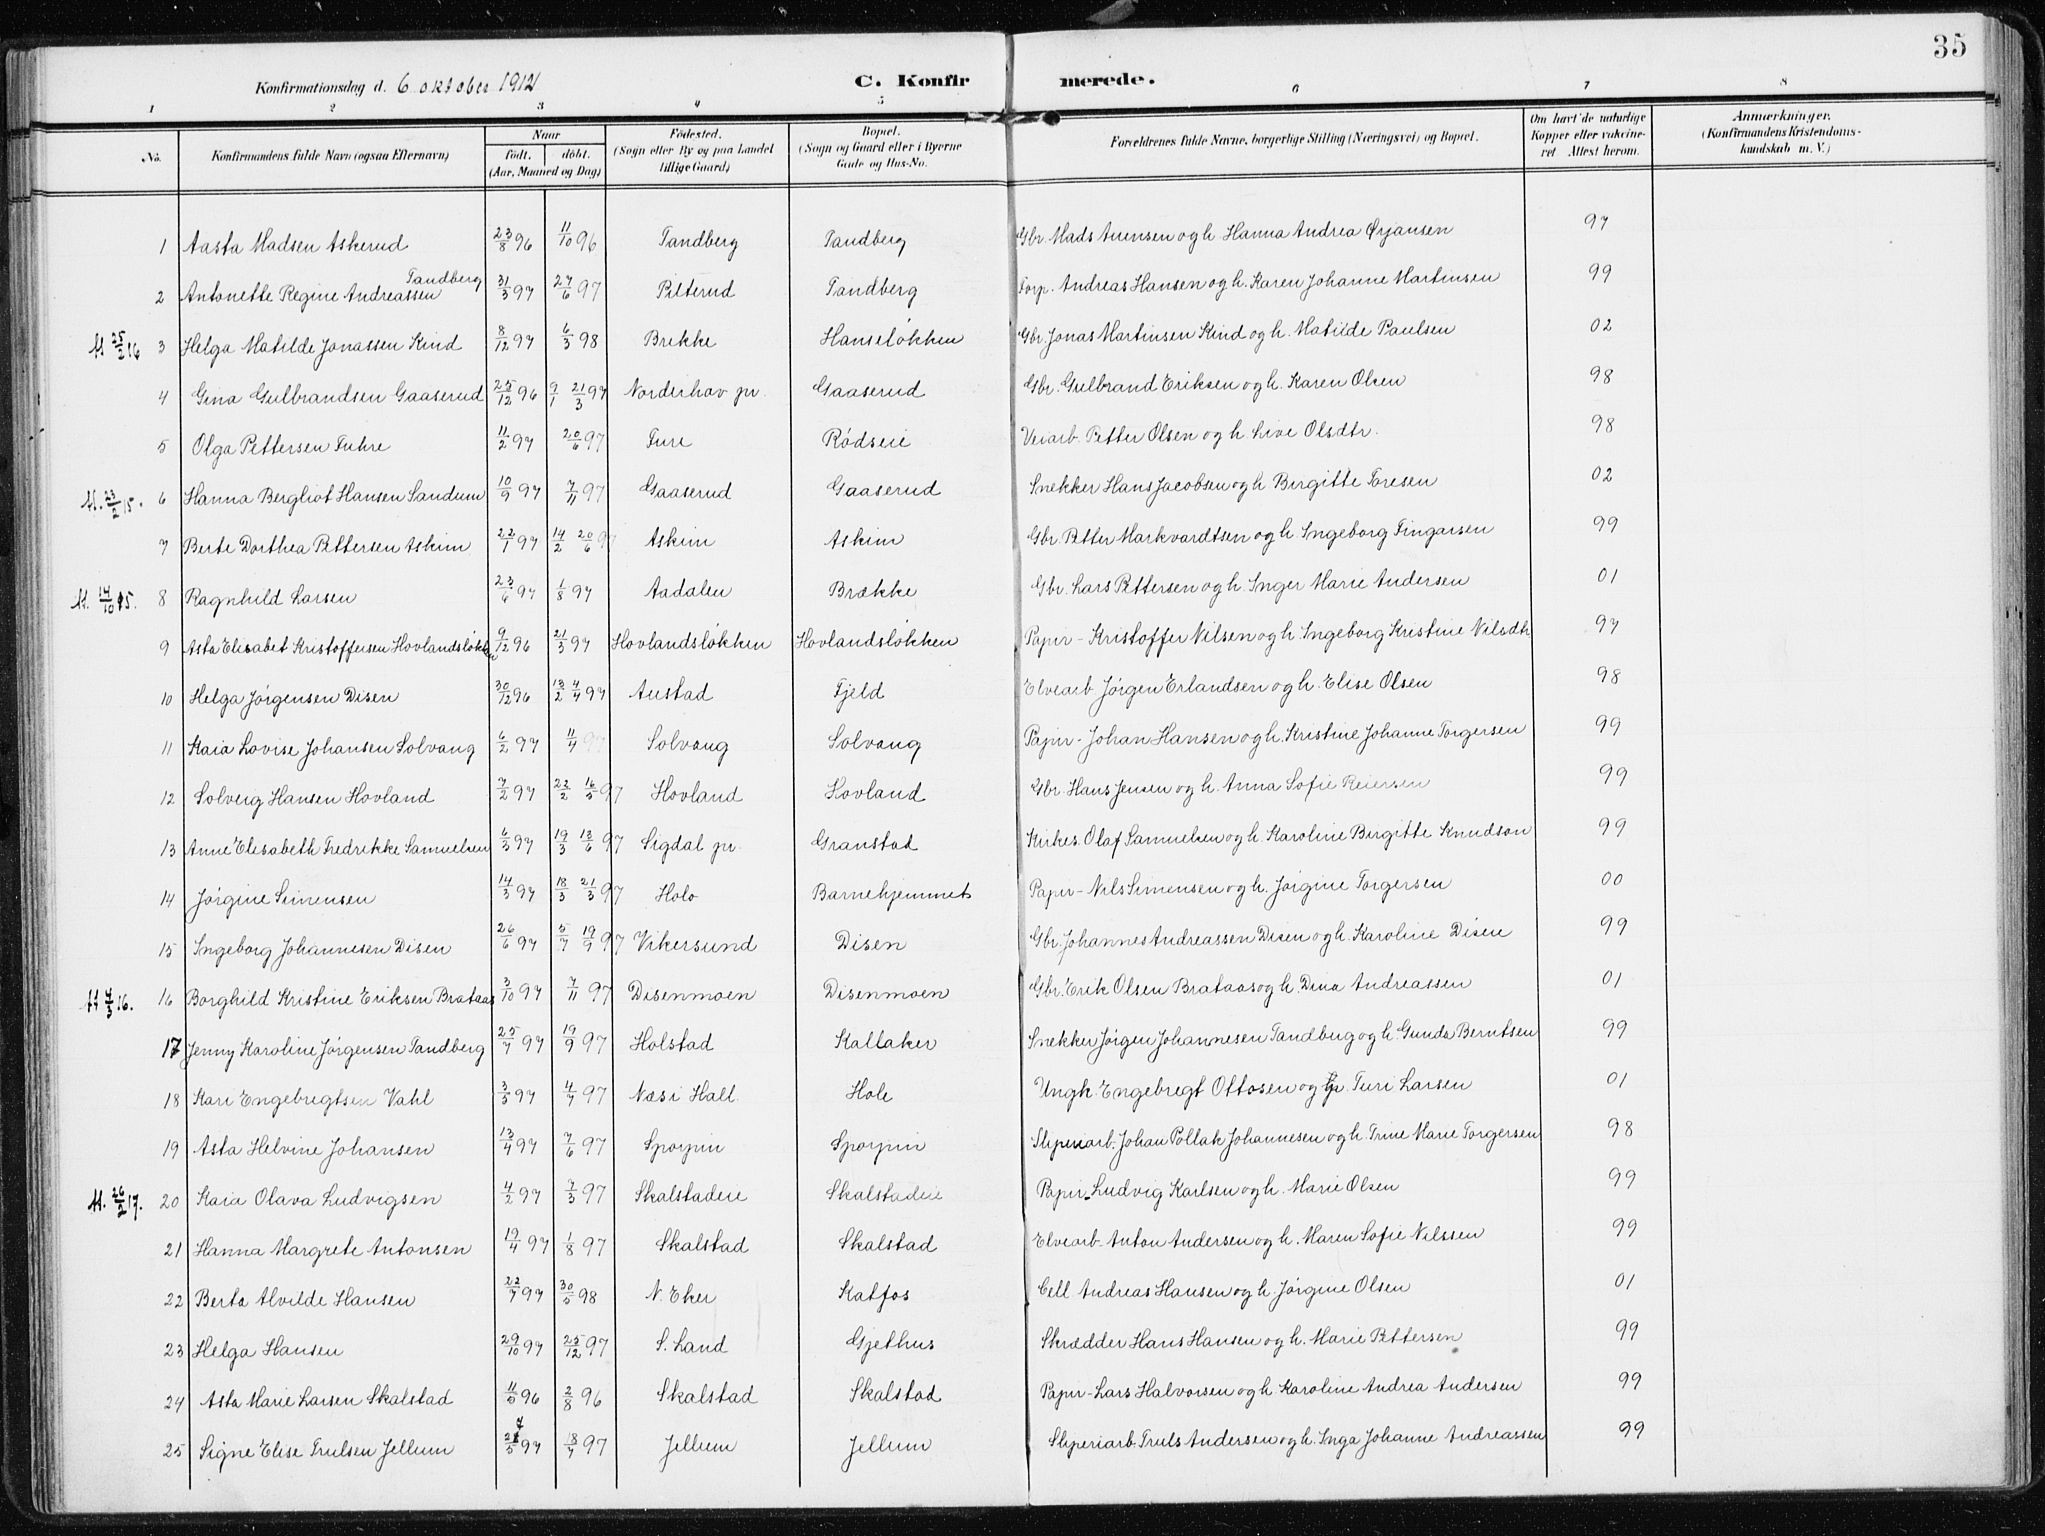 35
Konfirmationsdag d. 6 oktober 1912
C. Konfirmerede.
1 2 3 4 5 6 7 8
No.
Konfirmandens fulde Navn (ogsaa Efternavn)
Naar
født. døbt.
(Aar, Maaned og Dag)
Fødested.
(Sogn eller By og paa Landet tillige Gaard)
Bopæl.
(Sogn og Gaard eller i Byerne Gade og Hus-No.
Forældrenes fulde Navne, borgerlige Stilling (Næringsvei) og Bopæl.
Om havt de naturlige Kopper eller vaccineret Attest herom.
Anmærkninger.
(Konfirmandens Kristendomskundskab m. V.)
1 Aasta Madsen Askerud 23/8 96 11/10 96 Tandberg Tandberg Gbr. Mads Auensen og h. Hanna Andrea Ørjansen 97
2 Antonette Regine Andreassen Tandberg 31/3 97 27/6 97 Pilterud Tandberg Torp. Andreas Hansen og h. Karen Johanne Martinsen 99
25/2 16 3 Helga Matilde Jonassen Kind 8/12 97 6/3 98 Brekke Hanseløkken Gbr. Jonas Martinsen Kind og h. Matilde Paulsen 02
4 Gina Gulbrandsen Gaaserud 25/12 96 9/1 21/3 97 Norderhov pr. Gaaserud Gbr. Gulbrand Eriksen og h. Karen Olsen 98
5 Olga Pettersen Fuhre 11/2 97 20/6 97 Fure Rødseie Veiarb. Petter Olsen og h. Live Olsdtr. 98
23/2 15. 6 Hanna Bergliot Hansen Sandum 10/9 97 7/11 97 Gaaserud Gaaserud Snekker Hans Jacobsen og h. Birgitte Toresen 02
7 Berte Dorthea Pettersen Askim 22/1 97 14/2 20/6 97 Askim Askim Gbr. Petter Markvardtsen og h. Ingeborg Fingarsen 99
14/10 15. 8 Ragnhild Larsen 23/6 97 1/8 97 Aadalen Brække Gbr. Lars Pettersen og h. Inger Marie Andersen 01
9 Asta Elisabet Kristoffersen Hovlandsløkken 9/12 96 21/3 97 Hovlandsløkken Hovlandsløkken Papir- Kristoffer Nilsen og h. Ingeborg Kristine Nilsdtr 97
10 Helga Jørgensen Disen 30/12 96 13/2 4/4 97 Austad Fjeld Elvearb Jørgen Erlandsen og h. Elise Olsen 98
11 Kaia Lovise Johansen Solvang 6/2 97 11/4 97 Solvang Solvang Papir- Johan Hansen og h. Kristine Johanne Torgersen 99
12 Solveig Hansen Hovland 7/2 97 22/2 16/5 97 Hovland Hovland Gbr. Hans Jensen og h. Anna Sofie Reiersen 99
13 Anne Elisabeth Fredrekke Samuelsen 6/3 97 19/3 13/6 97 Sigdal pr. Granstad Kirkes. Olaf Samuelsen og h. Karoline Birgitte Knudson 99
14 Jørgine Simensen 14/3 97 18/3 21/3 97 Holo Barnehjemmet Papir- Nils Simensen og h. Jørgine Torgersen 00
15 Ingeborg Johannesen Disen 26/6 97 5/7 19/9 97 Vikersund Disen Gbr. Johannes Andreassen Disen og h. Karoline Disen 99
4/3 16. 16 Borghild Kristine Eriksen Brataas 3/10 97 7/11 97 Disenmoen Disenmoen Gbr. Erik Olsen Brataas og h. Dina Andreassen 01
17 Jenny Karoline Jørgensen Tandberg 25/7 97 19/9 97 Holstad Kallaker Snekker Jørgen Johannesen Tandberg og h. Gunda Berntsen 99
18 Kari Engebregtsen Vahl 3/5 97 4/7 97 Næs i Hall. Hole Ungk. Engebregt Ottosen og p. Turi Larsen 01
19 Asta Helvine Johansen 13/4 97 7/6 97 Sporpin Sporpin Sliperiarb. Johan Pollak Johannesen og h Trine Marie Torgersen 98
26/2 17. 20 Kaia Olava Ludvigsen 4/2 97 7/3 97 Skalstadeie Skalstadeie Papir- Ludvig Karlsen og h. Marie Olsen 99
21 Hanna Margrete Antonsen 19/4 97 1/8 97 Skalstad Skalstad Elvearb- Anton Andersen og h. Maren Sofie Nilssen 99
22 Berta Alvilde Hansen 22/7 97 30/5 98 N. Eker Katfos Cell Andreas Hansen og h. Jørgine Olsen 01
23 Helga Hansen 29/10 97 25/12 97 S. Land Gjethus Skrædder Hans Hansen og h. Marie Pettersen 99
24 Asta Marie Larsen Skalstad 11/5 96 2/8 96 Skalstad Skalstad Papir- Lars Halvorsen og h. Karoline Andrea Andersen 99
25 Signe Elise Trulsen Jellum 27/5 97 18/7 97 Jellum Jellum Sliperiarb. Truls Andersen og h. Inga Johanne Andreassen 99